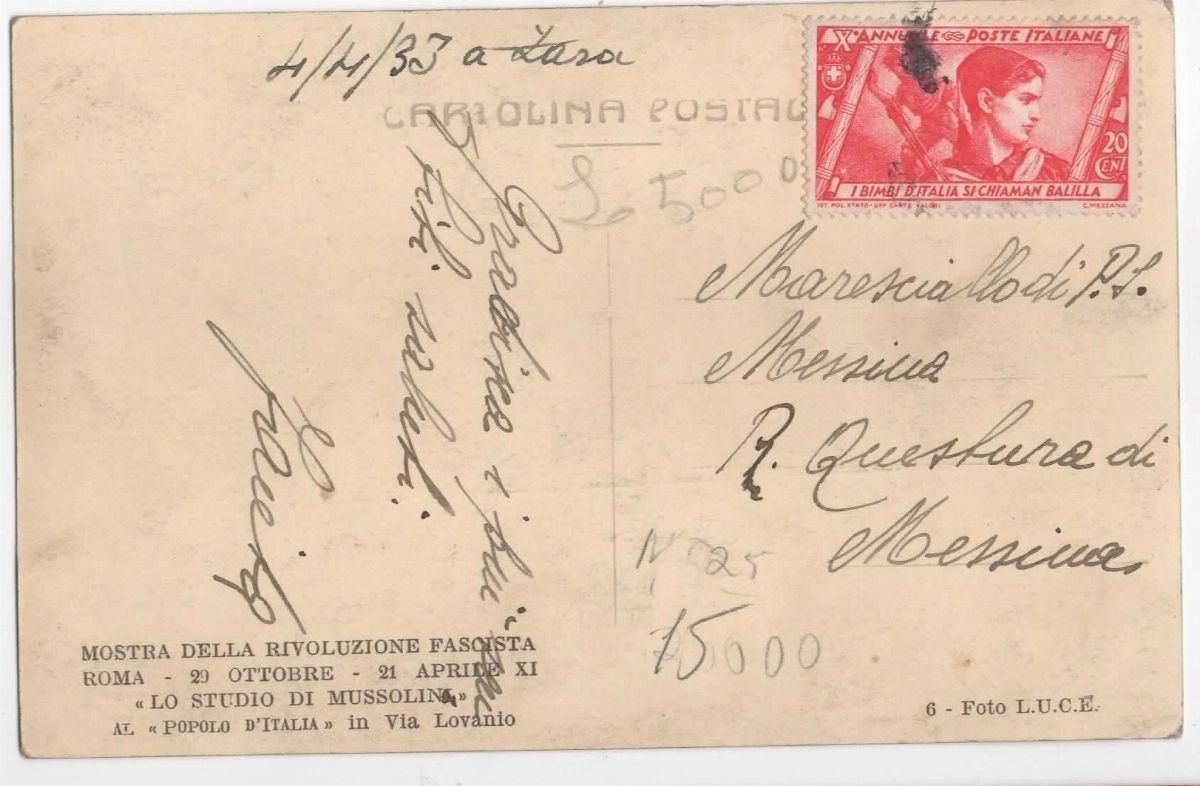 4/4/33 a Zara
CARTOLINA POSTAL
X° ANNUALE POSTE ITALIANE
20 CENT
I BIMBI D'ITALIA SI CHIAMAN BALILLA
IST. POL. STATO-OFF. CARTE VALORI C. MEZZANA
L. 5000
Gradisca i più
saluti.
Maresciallo di P.S.
Messina
R. Questura di
Messina
N 25
15000
MOSTRA DELLA RIVOLUZIONE FASCISTA
ROMA - 29 OTTOBRE - 21 APRILE XI
« LO STUDIO DI MUSSOLINI »
AL « POPOLO D'ITALIA » in Via Lovanio
6 - Foto L.U.C.E.